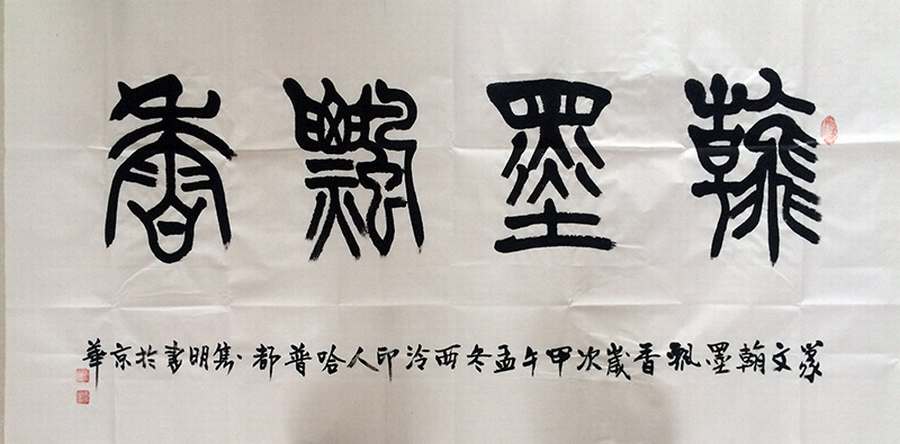 翰墨飘香
篆文翰墨飘香歲次甲午孟冬西泠印人哈普都·隽明書於京華